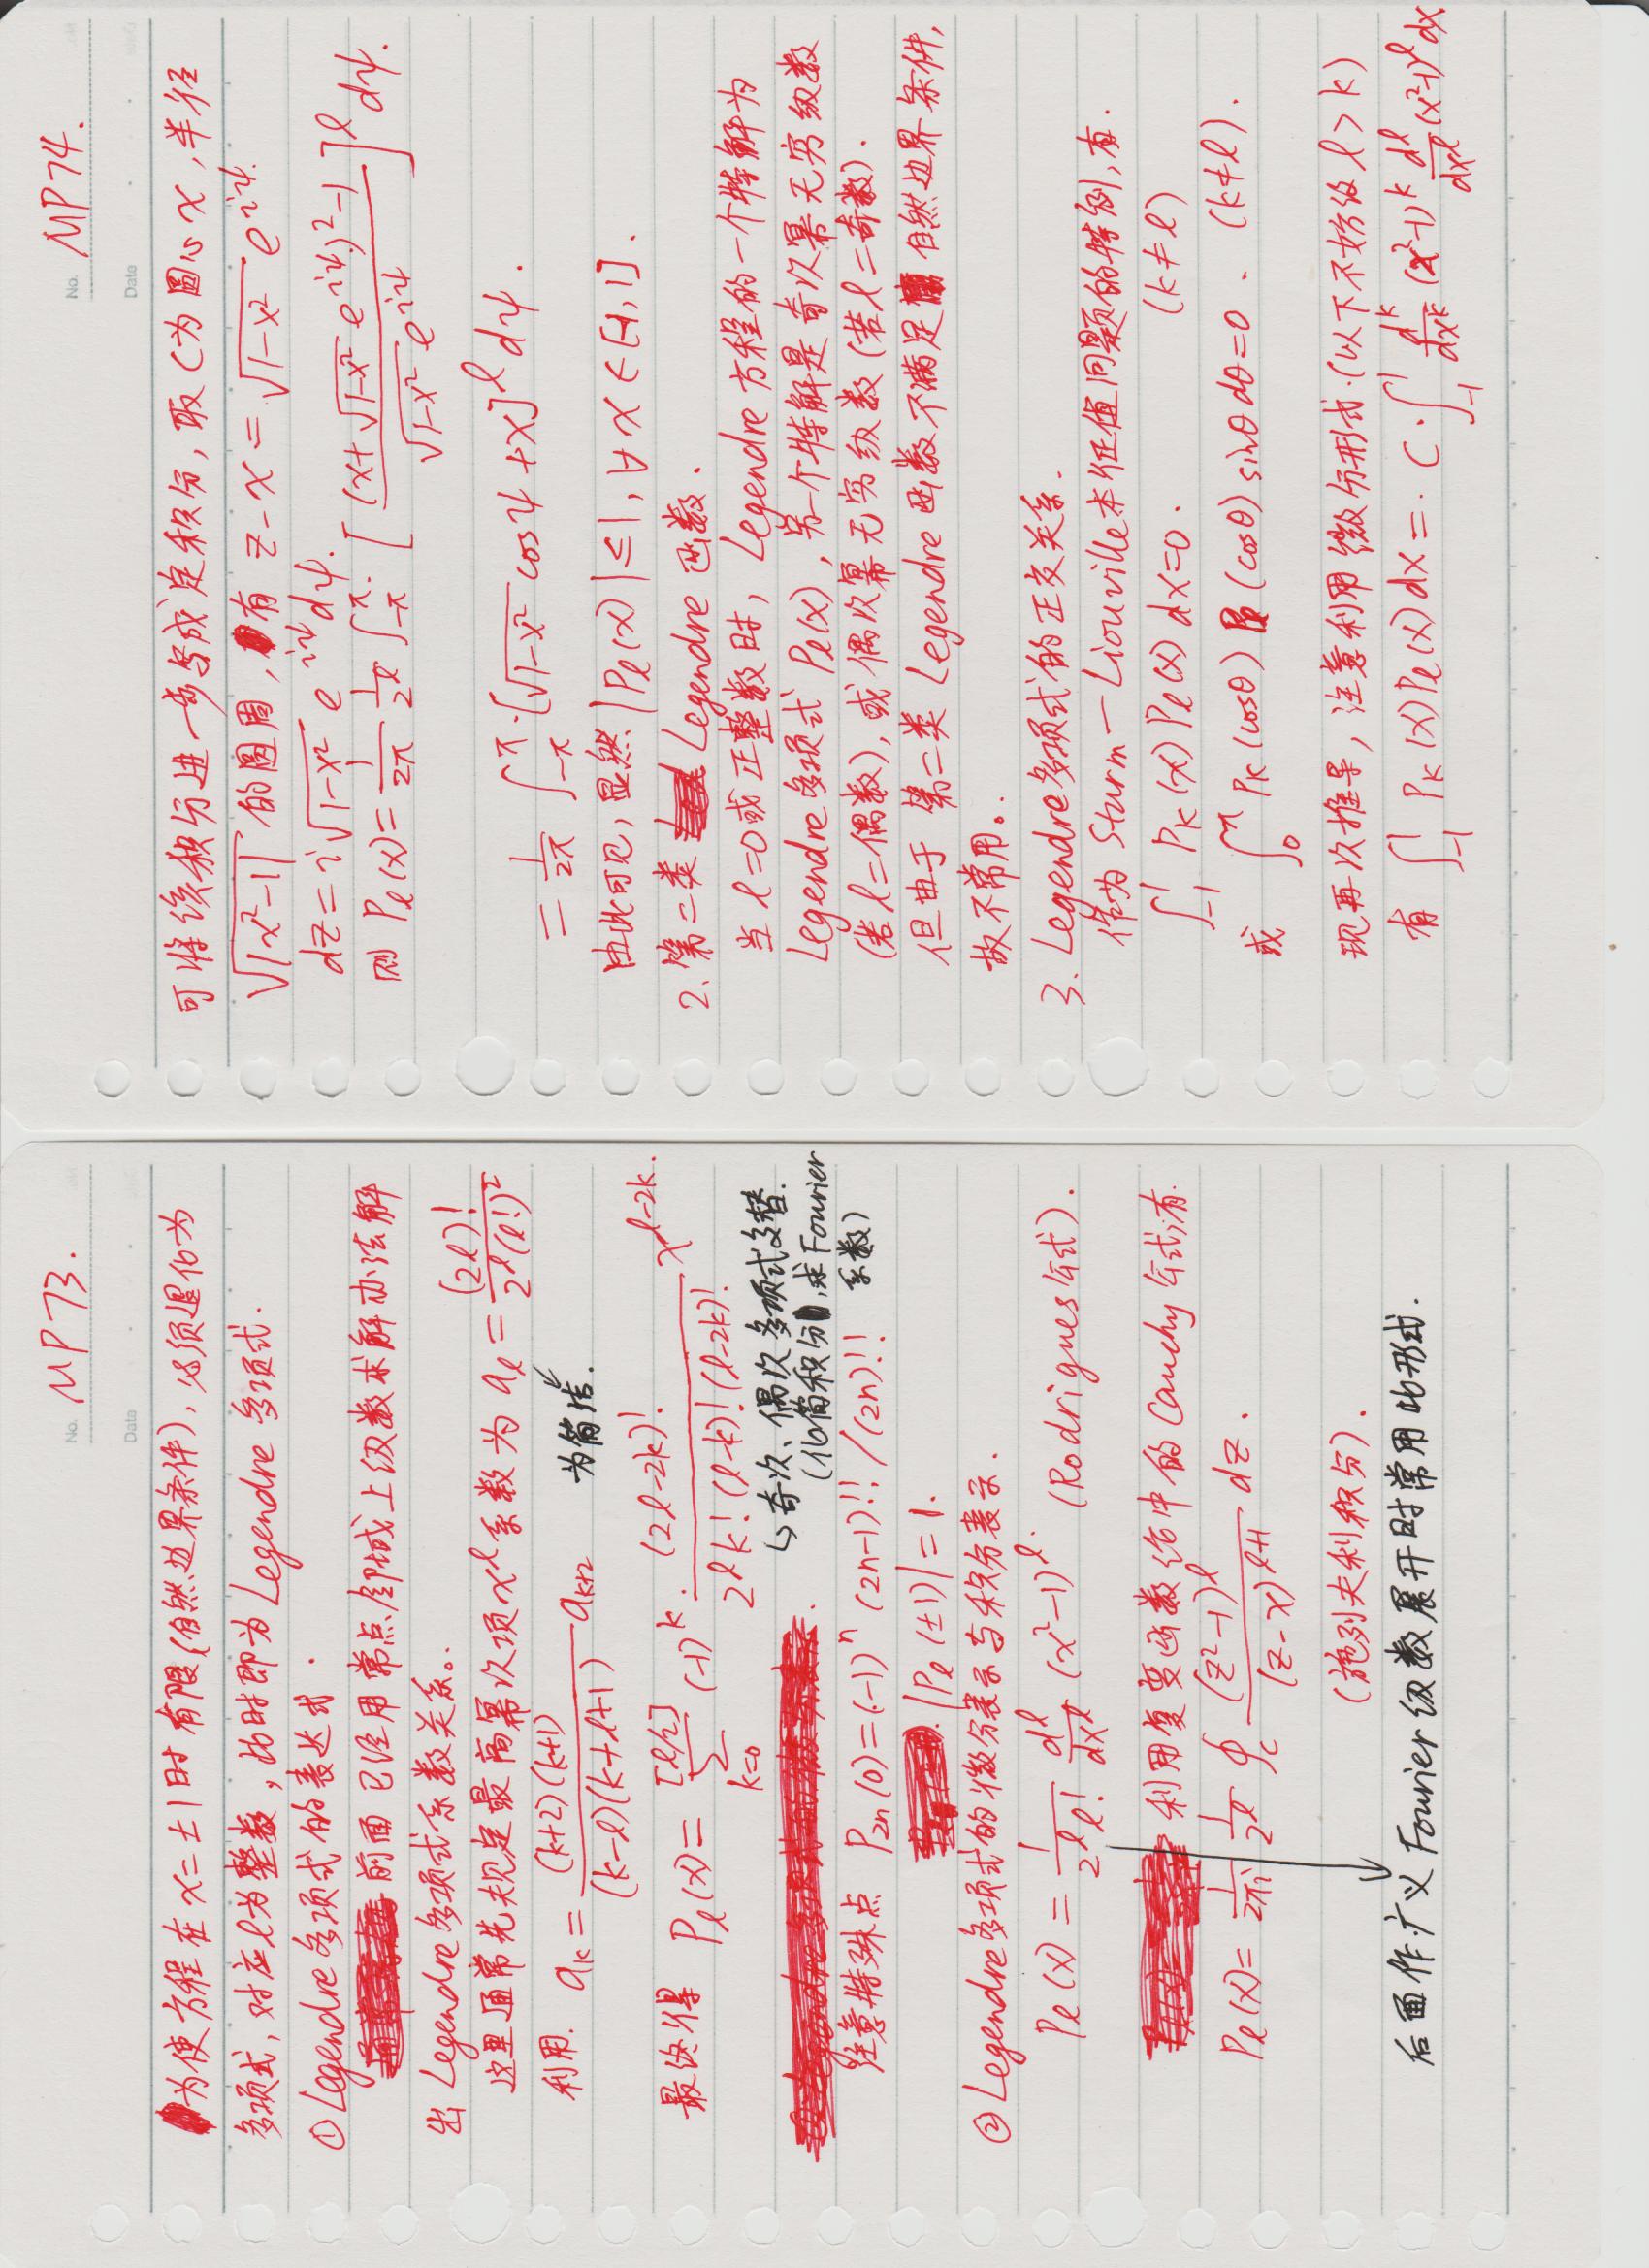 No. MP73.
Date
为使方程在 x=±1时有限(自然边界条件), 必须退化为
多项式, 对应l为整数, 此时即为 Legendre 多项式.
① Legendre多项式的表达式.
前面已经用常点邻域上级数求解办法解
出 Legendre多项式系数关系.
这里通常先规定最高幂次项x^l系数为 a_l = (2l)!/(2^l(l!)^2)
利用. a_k = (k+2)(k+1)/((k-l)(k+l+1)) a_{k+2} 为简洁.
最终得 P_l(x) = Σ_{k=0}^{[l/2]} (-1)^k · (2l-2k)!/(2^l k!(l-k)!(l-2k)!) x^{l-2k}.
↳ 奇次、偶次多项式交替.
(化简积分, 求 Fourier
系数)
注意特殊点 P_{2n}(0) = (-1)^n (2n-1)!!/(2n)!!
|P_l(±1)| = 1.
② Legendre多项式的微分表示与积分表示.
P_l(x) = 1/(2^l l!) d^l/dx^l (x²-1)^l. (Rodrigues公式).
利用复变函数论中的 Cauchy 公式, 有.
P_l(x) = 1/(2πi) 1/2^l ∮_C (z²-1)^l/(z-x)^{l+1} dz.
(施列夫利积分).
后面作广义 Fourier 级数展开时常用此形式.
No. MP74.
Date
可将该积分进一步写成定积分, 取C为圆心x, 半径
√|x²-1| 的圆周, 有 z-x = √(1-x²) e^{iψ}.
dz = i√(1-x²) e^{iψ}dψ.
则 P_l(x) = 1/(2π) 1/2^l ∫_{-π}^{π} [((x+√(1-x²) e^{iψ})²-1)/(√(1-x²) e^{iψ})]^l dψ.
= 1/(2π) ∫_{-π}^{π} [√(1-x²) cosψ+x]^l dψ.
由此可见, 显然 |P_l(x)| ≤ 1, ∀ x ∈ [-1, 1].
2. 第二类 Legendre 函数.
当 l=0或正整数时, Legendre 方程的一个特解为
Legendre 多项式 P_l(x), 另一个特解是奇次幂无穷级数
(若l=偶数), 或偶次幂无穷级数(若l=奇数).
但由于第二类 Legendre 函数不满足自然边界条件,
故不常用.
3. Legendre多项式的正交关系.
作为 Sturm—Liouville本征值问题的特例, 有.
∫_{-1}^{1} P_k(x) P_l(x) dx=0. (k≠l)
或 ∫_0^π P_k(cosθ) P_l(cosθ) sinθ dθ=0. (k≠l).
现再次推导, 注意利用微分形式.(以下不妨设 l>k)
有 ∫_{-1}^{1} P_k(x)P_l(x)dx = C·∫_{-1}^{1} d^k/dx^k (x²-1)^k d^l/dx^l (x²-1)^l dx